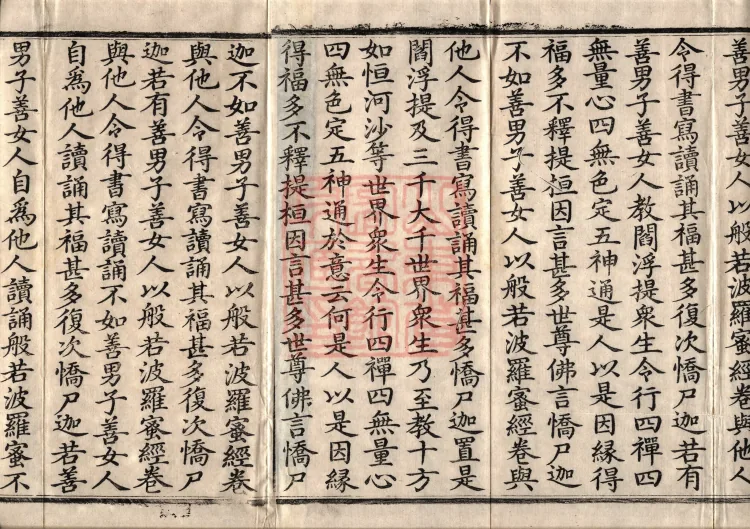 善男子善女人以般若波羅蜜經卷與他人
令得書寫讀誦其福甚多復次憍尸迦若有
善男子善女人教閻浮提衆生令行四禪四
無量心四無色定五神通是人以是因緣得
福多不釋提桓因言甚多世尊佛言憍尸迦
不如善男子善女人以般若波羅蜜經卷與
他人令得書寫讀誦其福甚多憍尸迦置是
閻浮提及三千大千世界衆生乃至教十方
如恒河沙等世界衆生令行四禪四無量心
四無色定五神通於意云何是人以是因緣
得福多不釋提桓因言甚多世尊佛言憍尸
迦不如善男子善女人以般若波羅蜜經卷
與他人令得書寫讀誦其福甚多復次憍尸
迦若有善男子善女人以般若波羅蜜經卷
與他人令得書寫讀誦不如善男子善女人
自爲他人讀誦其福甚多復次憍尸迦若善
男子善女人自爲他人讀誦般若波羅蜜不